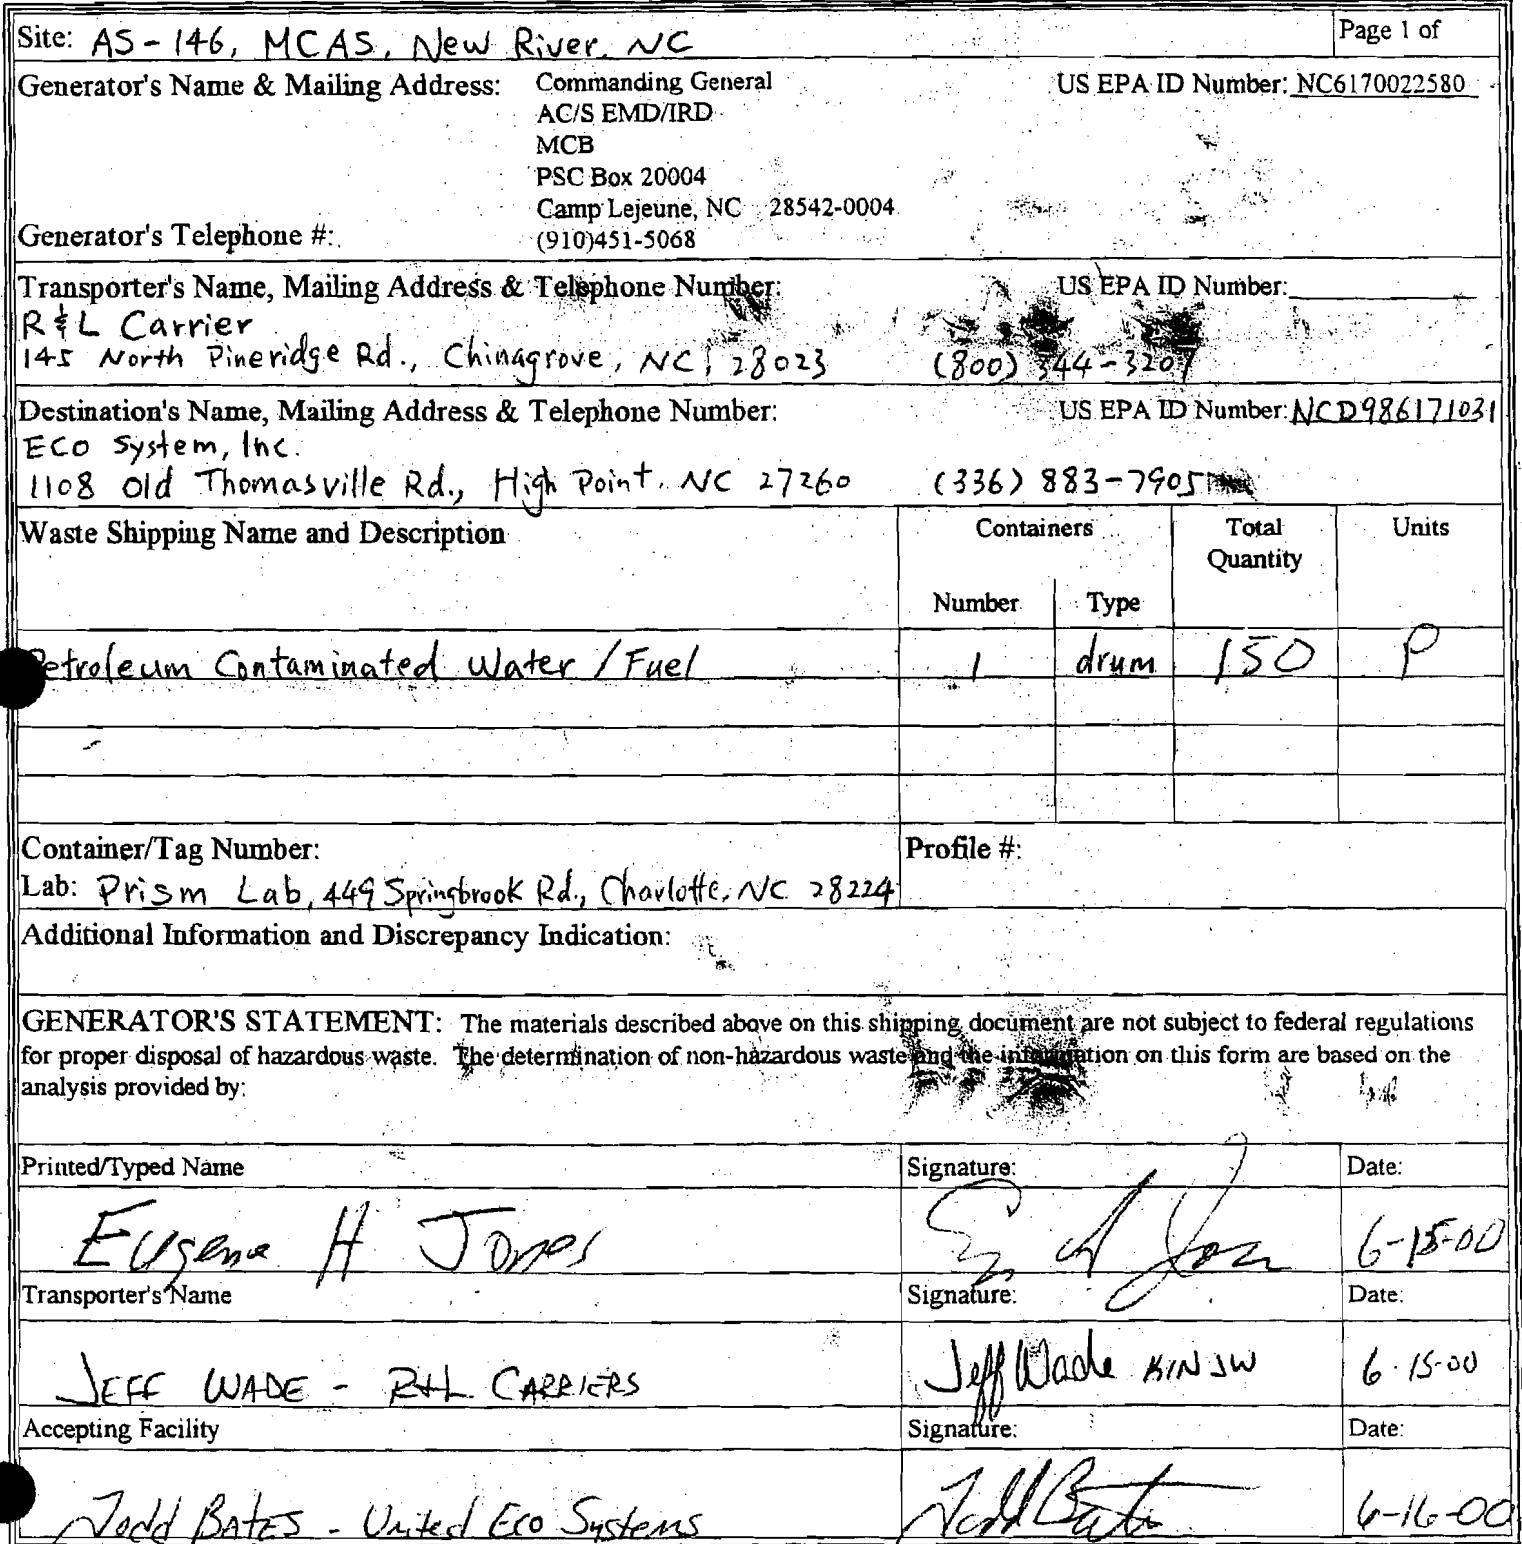 Site: AS-146, MCAS, New River, NC
Page 1 of
Generator's Name & Mailing Address:
Commanding General
US EPA ID Number: NC6170022580
AC/S EMD/IRD
MCB
PSC Box 20004
Camp Lejeune, NC 28542-0004
Generator's Telephone #:
(910)451-5068
Transporter's Name, Mailing Address & Telephone Number:
US EPA ID Number:
R & L Carrier
145 North Pineridge Rd., Chinagrove, NC, 28023 (800) 344-3207
Destination's Name, Mailing Address & Telephone Number:
US EPA ID Number: NCD986171031
ECO System, Inc.
1108 Old Thomasville Rd., High Point, NC 27260 (336) 883-7905
Waste Shipping Name and Description
Containers
Total
Quantity
Units
Number
Type
Petroleum Contaminated Water / Fuel 1 drum 150 P
Container/Tag Number:
Profile #:
Lab: Prism Lab, 449 Springbrook Rd., Charlotte, NC 28224
Additional Information and Discrepancy Indication:
GENERATOR'S STATEMENT: The materials described above on this shipping document are not subject to federal regulations
for proper disposal of hazardous waste. The determination of non-hazardous waste and the information on this form are based on the
analysis provided by:
Printed/Typed Name
Signature:
Date:
Eugene H Jones
6-15-00
Transporter's Name
Signature:
Date:
JEFF WADE - R+L CARRIERS
Jeff Wade
6-15-00
Accepting Facility
Signature:
Date:
Todd BATES - United Eco Systems
Todd Bates
6-16-00